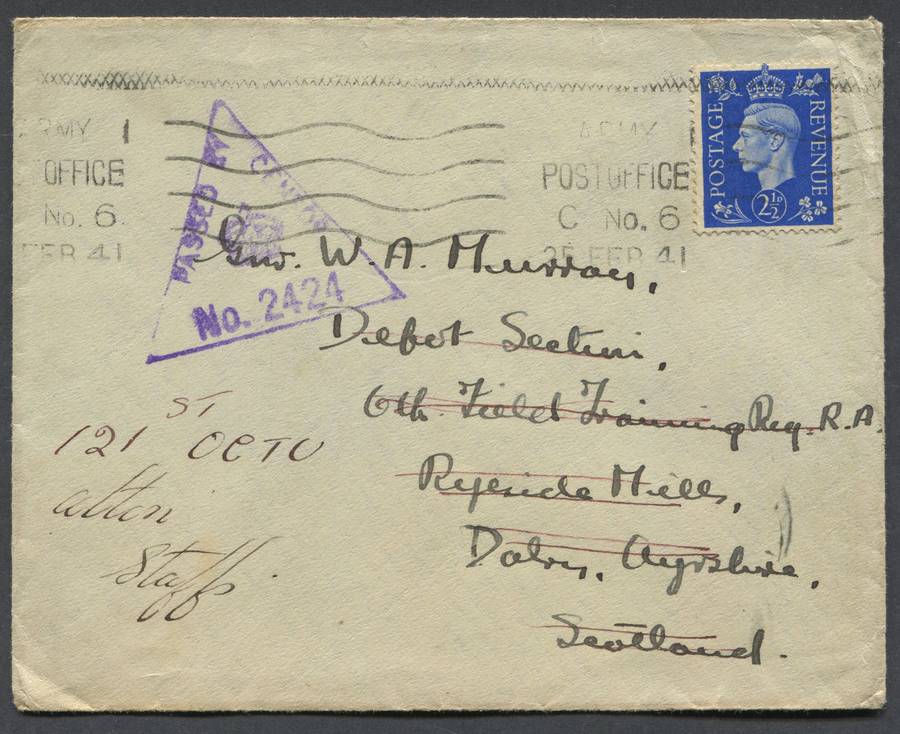 ARMY 1
OFFICE
No. 6.
FEB 41
ARMY
POST OFFICE
C No. 6
25 FEB 41
POSTAGE
REVENUE
2½D
PASSED BY CENSOR
No. 2424
Gnr. W. A. Murray,
Depot Section,
6th Field Training Reg. R.A.
Ryeside Mills,
Dalry, Ayrshire,
Scotland.
121ST OCTU
alton
Staffs.